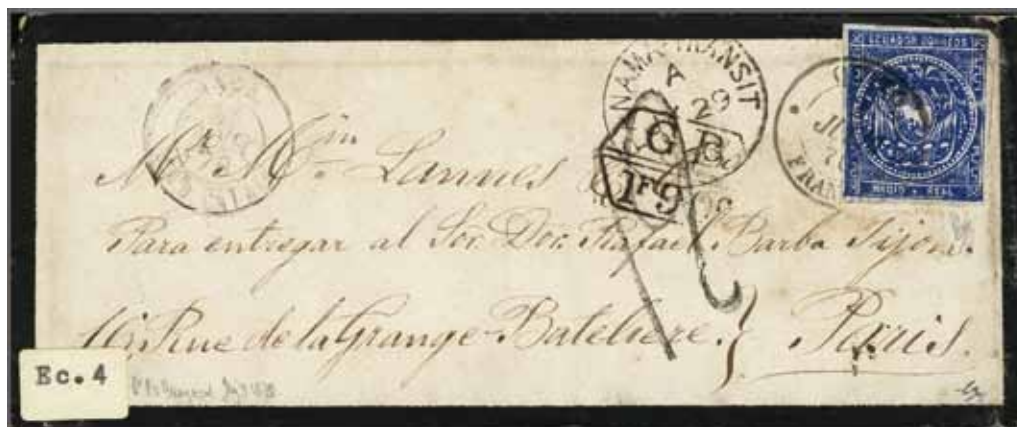 ECUADOR CORREOS
MEDIO REAL
NAMA TRANSIT
A
29
FRAN
GB
1F90c
Mr Min Lannes
Para entregar al Sor. Dor. Rafael Barba Jijon.
16, Rue de la Grange-Bateliere. } Paris.
Ec.4